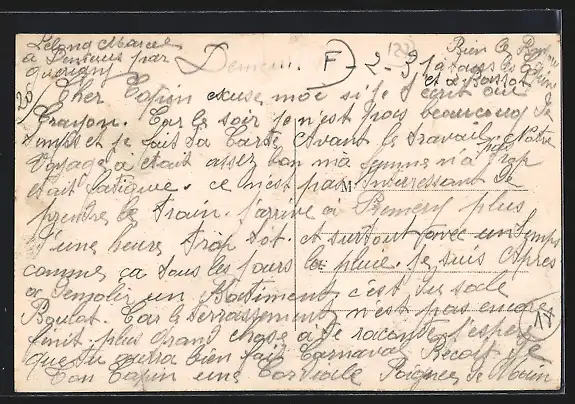 Lelong Marcel
à Demeurs par
Guérigny
F - 2 - 31
Bien le Bonjour
à tous les
et à
20
Cher Copin excuse moi si je t'écrit au
Crayon. Car le soir je n'est pois beaucoup de
temps et je fait sa Carte Avant le travail. Notre
Voyage a était assez bon ma femme n'a pas trop
était fatiguée. ce n'est pas Interressant de
prendre le train. j'arrive à Prémery plus
d'une heure trop tôt. et surtout avec un temps
comme ça tous les jours la pluie. je suis Après
a Demolir un Batiment c'est du sale
Boulot. Car le terrassement n'est pas encore
finit. plus grand chose à te raconter j'espère
que tu aurra bien fait Carnaval. Recoit de
ton Copin une Cordiale Poignée de Main
17